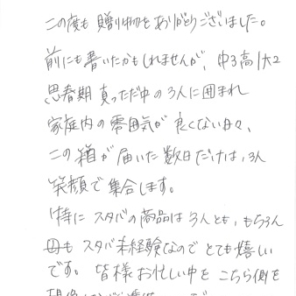 この度も贈り物をありがとうございました。
前にも書いたかもしれませんが、中3高1大2
思春期真っただ中の3人に囲まれ
家庭内の雰囲気が良くない日々、
この箱が届いた数日だけは、3人
笑顔で集合します。
特にスタバの商品は3人とも、もちろん
母もスタバ未経験なのでとても嬉しい
です。皆様お忙しい中をこちら側を